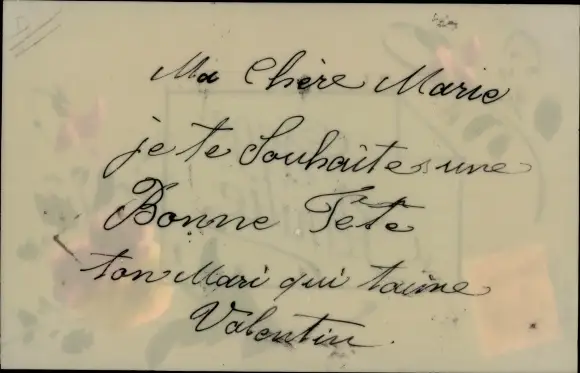 Ma Chère Marie
je te Souhaite une
Bonne Fête
ton Mari qui taime
Valentin